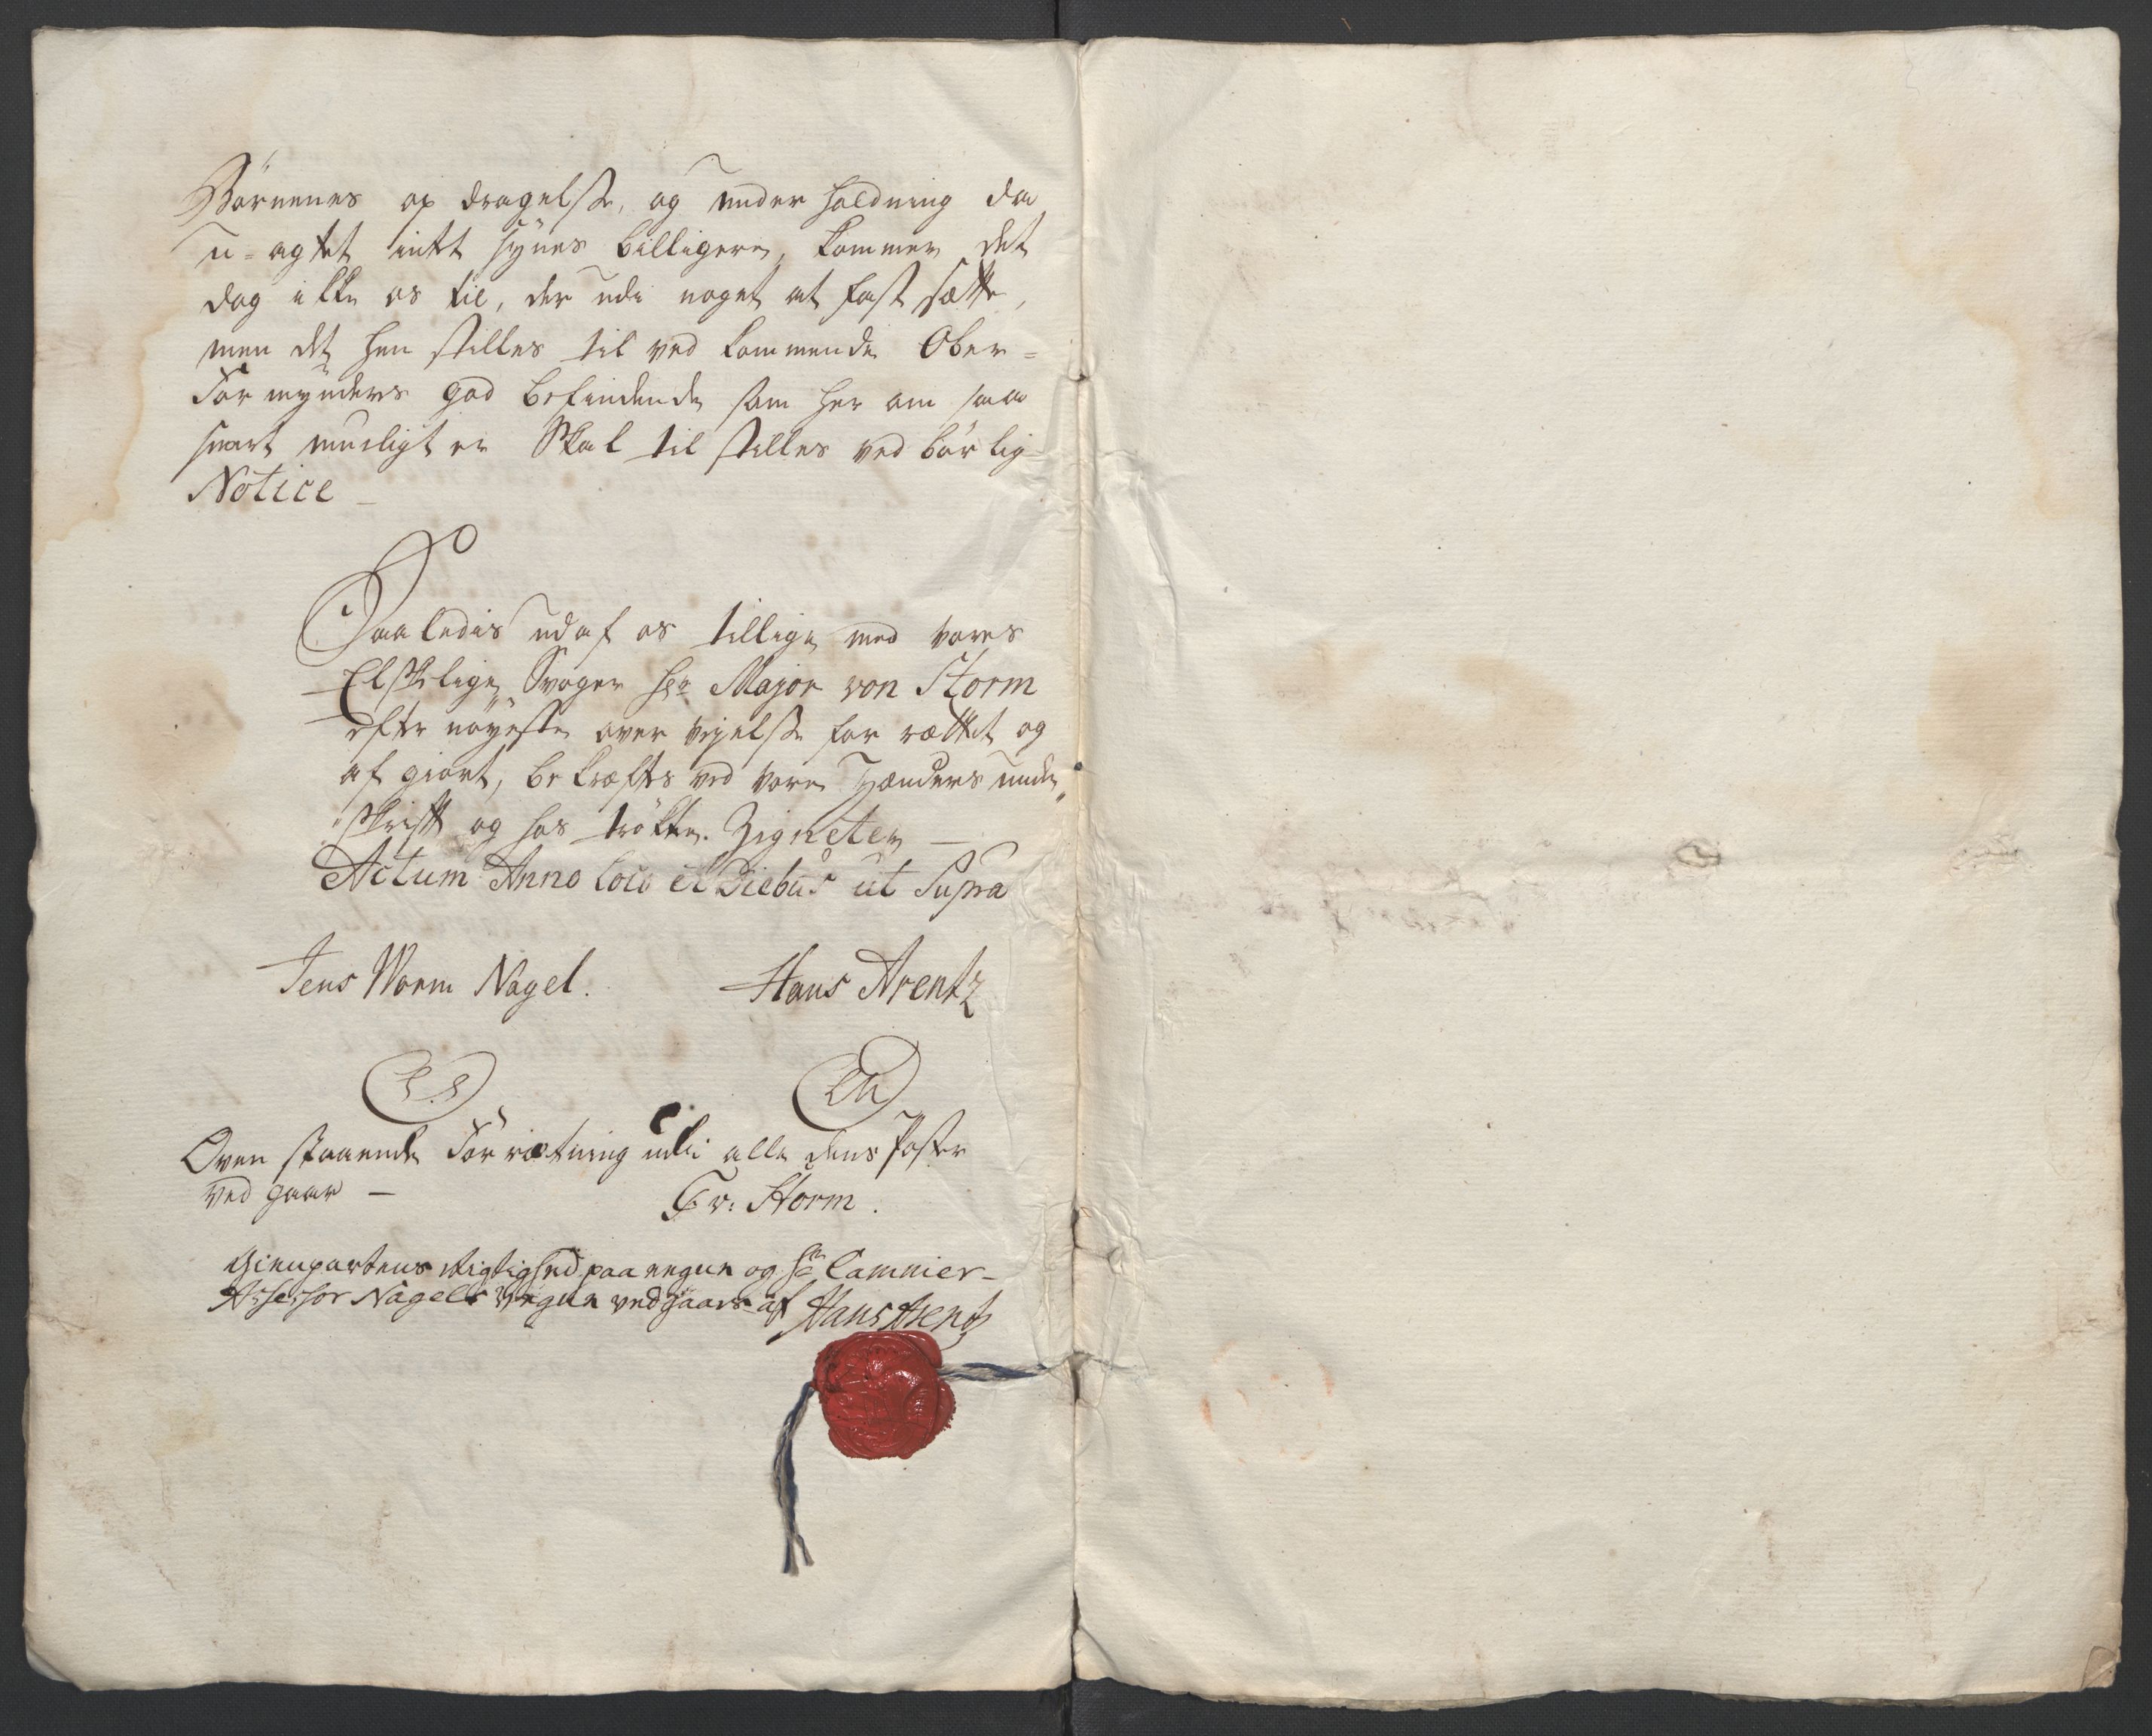 Börnenes op dragelse, og under holdning da
u-agtet intet synes billigere, kommer det
dog ikke os til, der udi noget at fast sætte,
men det hen stilles til ved kommende Ober=
Formynders god befindende som her om saa
snart mueligt er Skal til stilles ved börlig
Notice _
Saaledis udaf os tillige med vores
Elskelige Svoger Hr Major von Storm
efter nöyeste over vejelse for rættet og
af giort, be kræftes ved vore Hænders under
"skrift og hos trökte Zigneter _
Actum Anno loco et Diebus ut Supra
Jens Worm Nagel. Hans Arentz
L.S
Oven staaende Forrætning udi alle dens Poster
ved gaar _ Fr: Storm.
Gienpartens Rigtighed paa egne og Hr Cammer-
Assessor Nagels Vegne vedgaaes af Hans Arentz